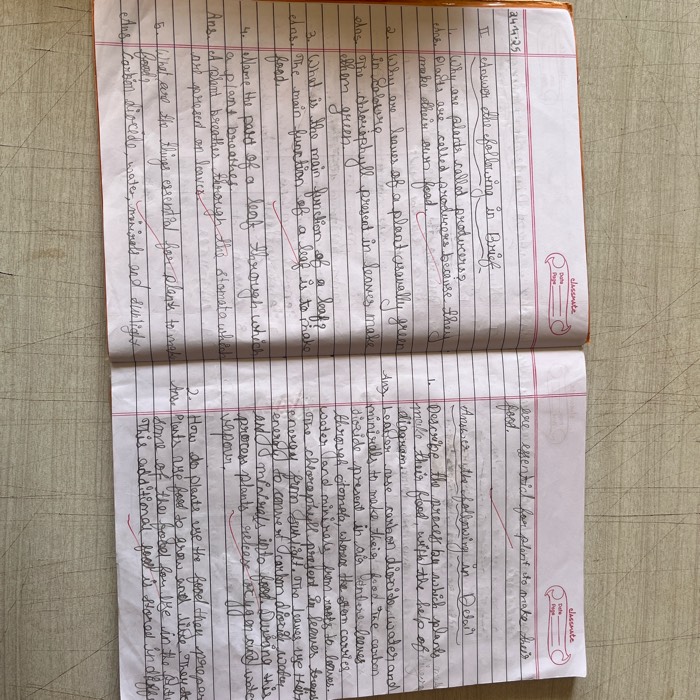 classmate
Date
Page
24.4.25
II Answer the following in Brief
1. Why are plants called producers?
Ans. Plants are called producers because they
make their own food.
2. Why are leaves of a plant usually green
in colour?
Ans. The chlorophyll present in leaves make
them green.
3. What is the main function of a leaf?
Ans. The main function of a leaf is to make
food
4. Name the part of a leaf through which
a plant breathes
Ans. A plant breathes through the stomata which
are present on leaves
5. What are the things essential for plants to make
food?
Ans. Carbon dioxide, water, minerals and sunlight
classmate
Date
Page
are essential for plant to make their
food
Answer the following in Detail
1. Describe the process by which plants
make their food with the help of
diagram.
Ans. use carbon dioxide water and
minerals to make their food The carbon
dioxide present in air leaves
through stomata the stem carries
water and minerals from roots to leaves.
The chlorophyll present in leaves
energy from sunlight. The leaves use
energy to convert carbon water
and minerals into food During this
process plants release and water
vapour.
2. How do plants use the food they
Ans. Plants use food to grow and
some of the food for use in the
This additional food is stored in